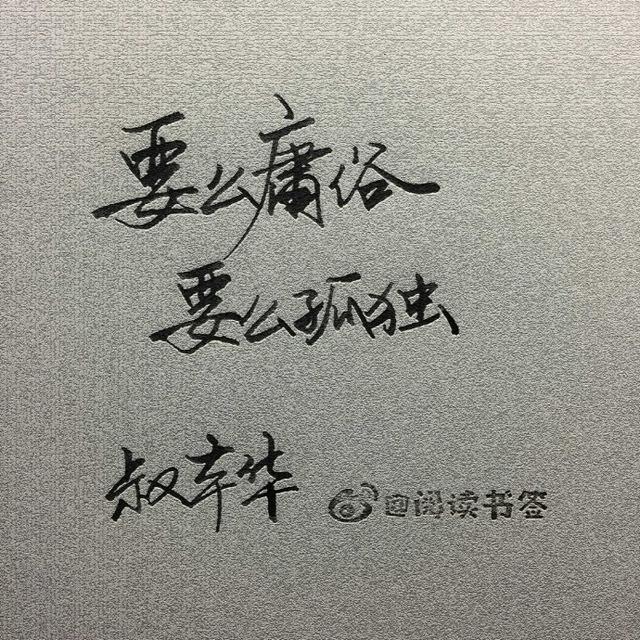 要么庸俗
要么孤独
叔本华
@阅读书签